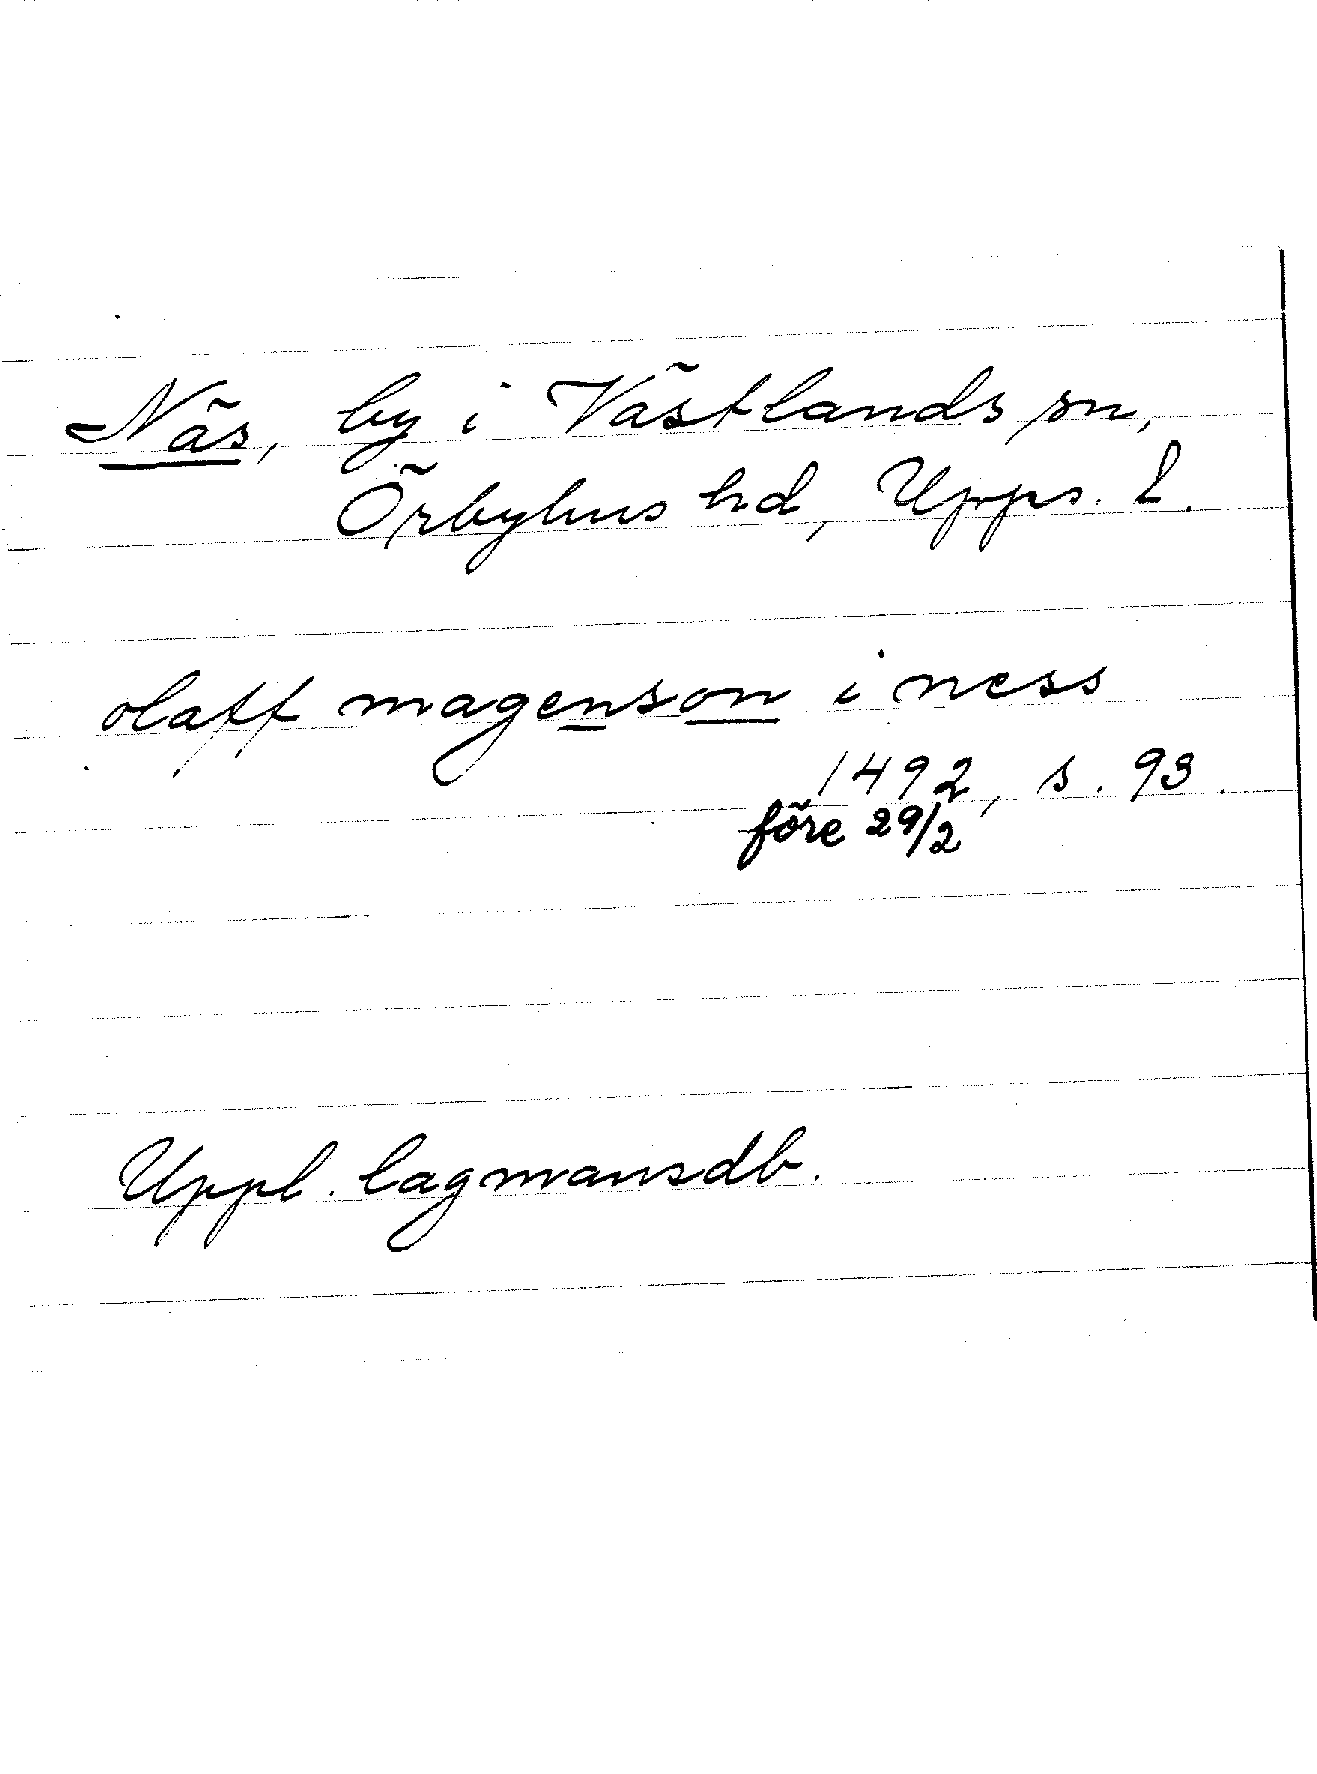 Näs, by i Västlands sn,
Örbyhus hd, Upps. l.
olaff magenson i ness
1492, s. 93.
före 29/2
Uppl. lagmansdb.